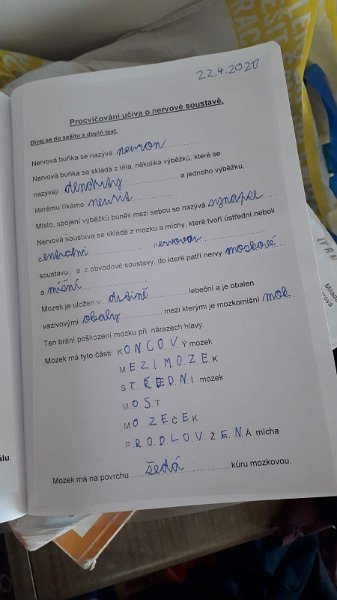 22.4.2020
Procvičování učiva o nervové soustavě.
Dívej se do sešitu a doplň text.
Nervová buňka se nazývá neuron
Nervová buňka se skládá z těla, několika výběžků, které se
nazývají dendrity a jednoho výběžku,
kterému říkáme neurit
Místo, spojení výběžků buněk mezi sebou se nazývá synapse
Nervová soustava se skládá z mozku a míchy, které tvoří ústřední neboli
centrální nervovou
soustavu, a z obvodové soustavy, do které patří nervy mozkové
a míšní
Mozek je uložen v dutině lebeční a je obalen
vazivovými obaly mezi kterými je mozkomíšní mok
Ten brání poškození mozku při nárazech hlavy.
Mozek má tyto části KONCOVÝ mozek
MEZIMOZEK
STŘEDNÍ mozek
MOST
MOZEČEK
PRODLOUŽENÁ mícha
Mozek má na povrchu šedá kůru mozkovou.